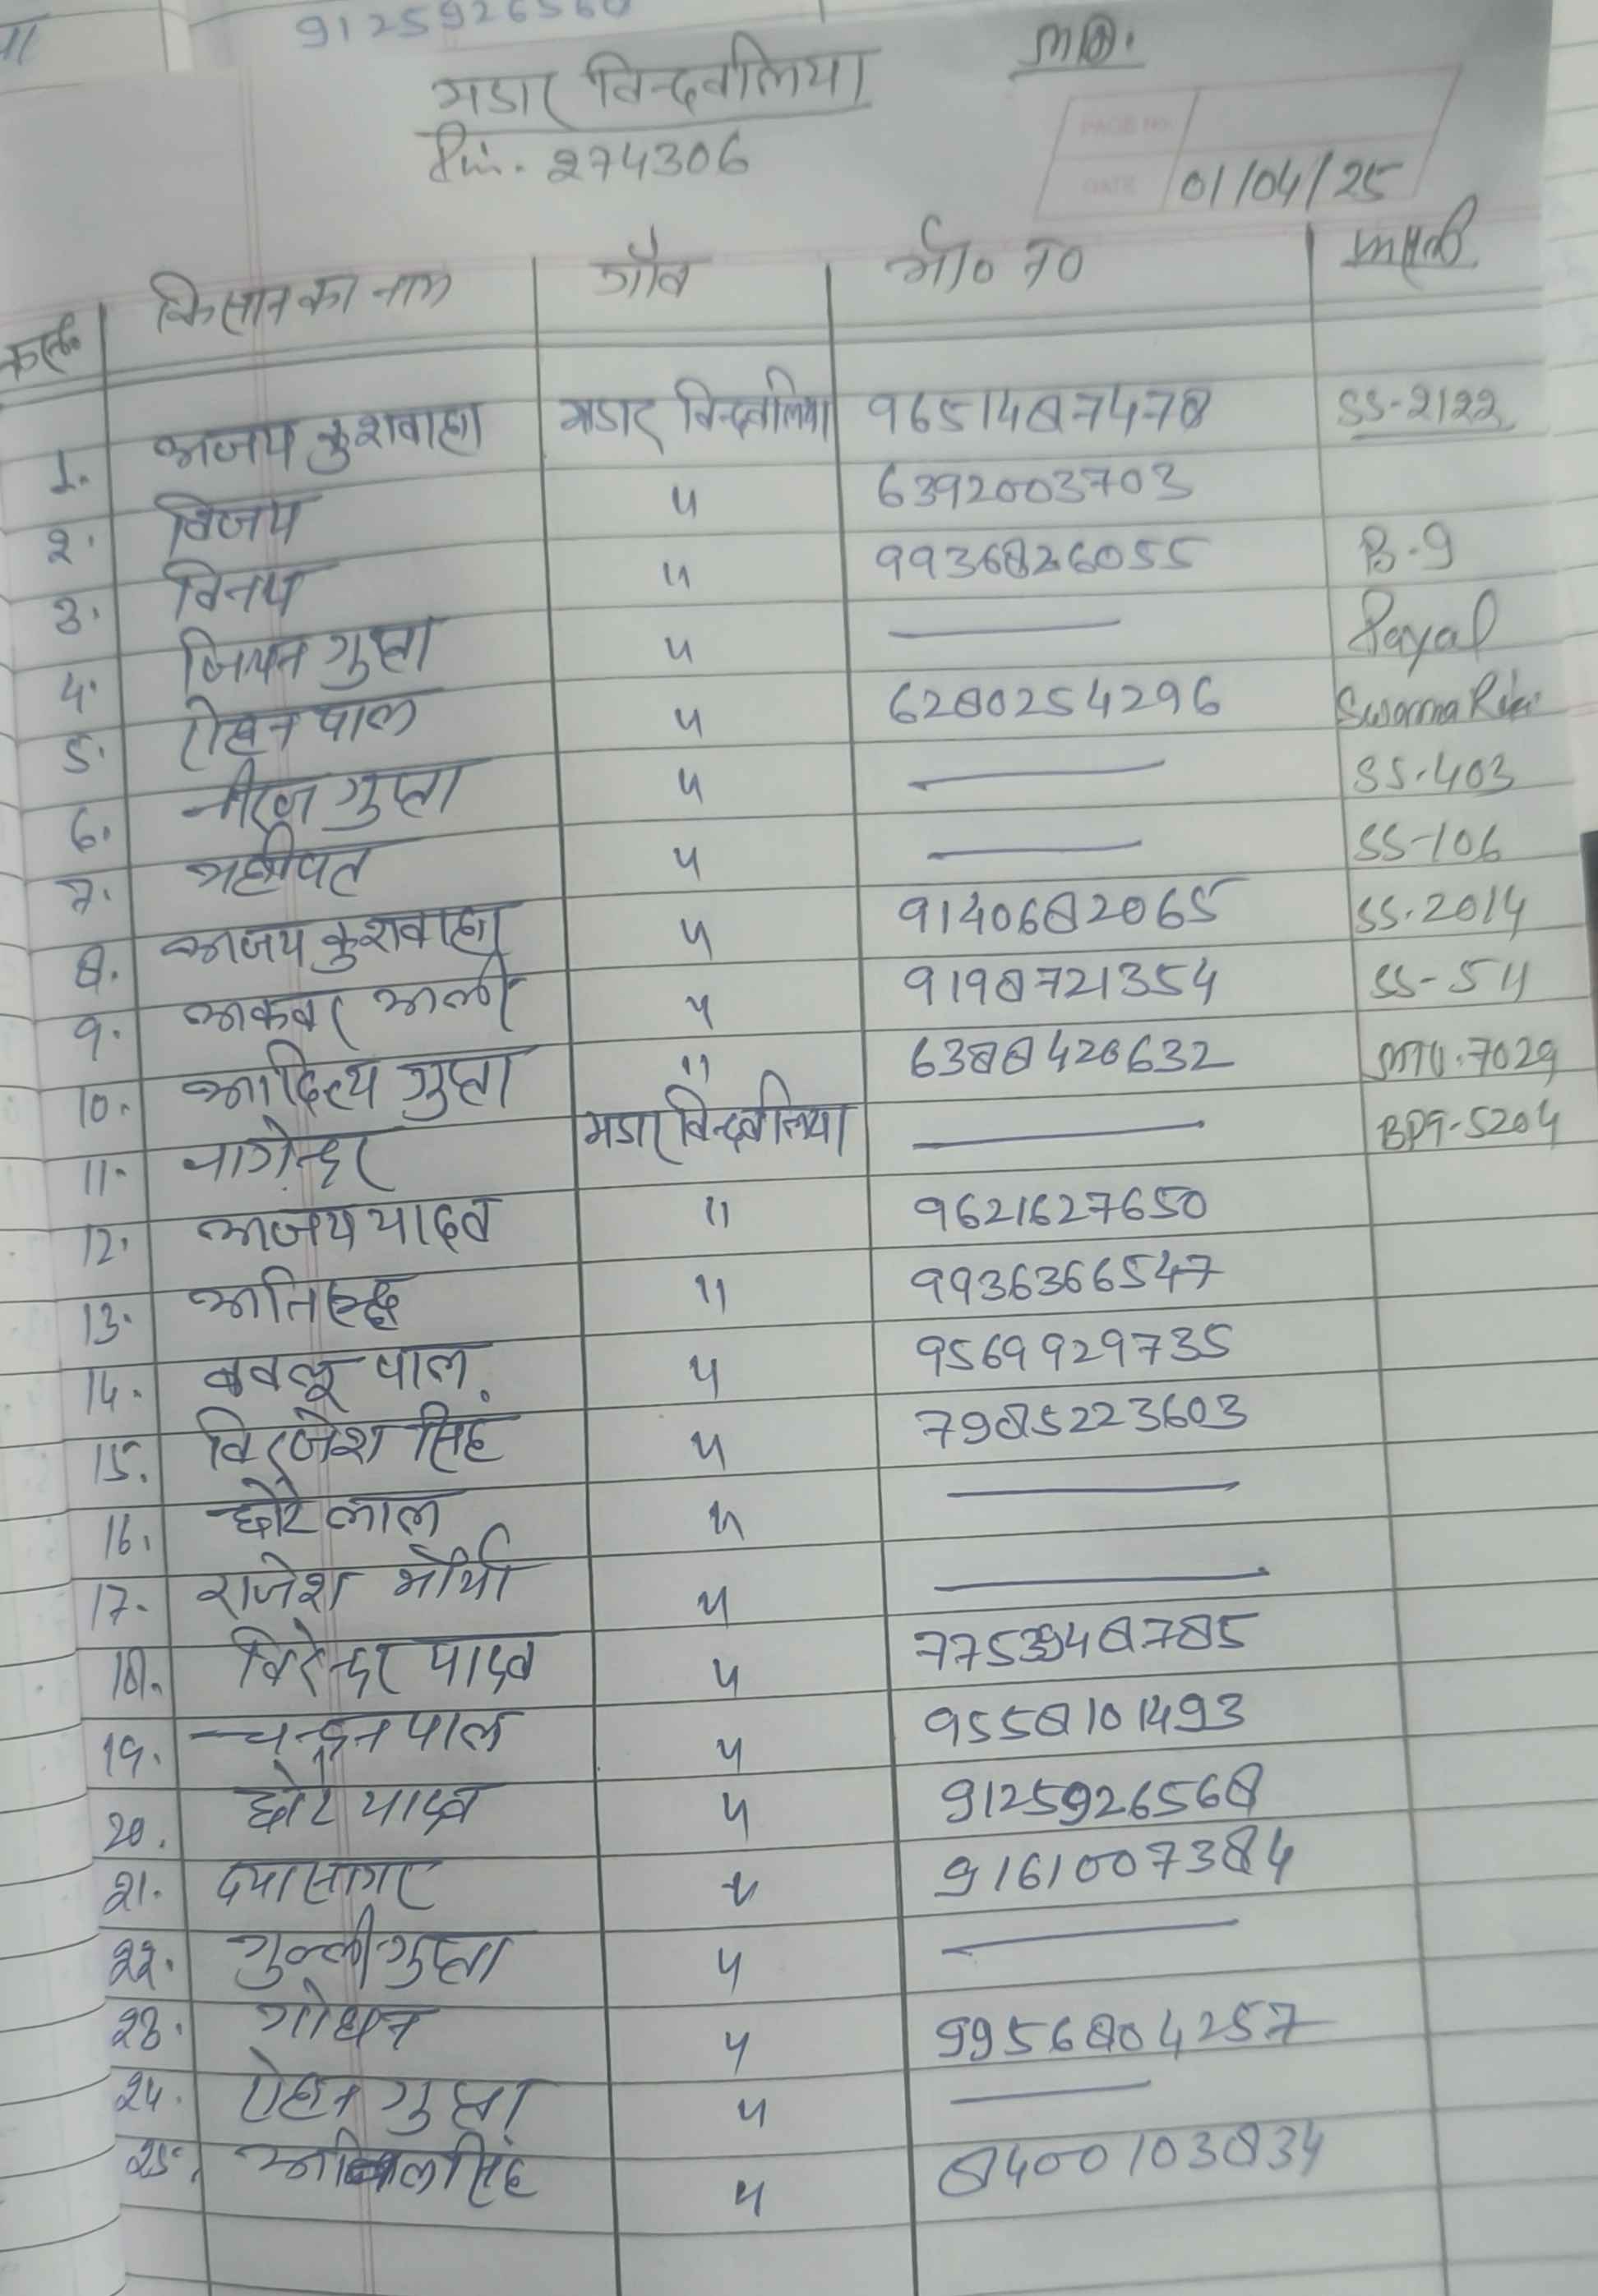 9125926568
मडार विन्दवलिया
Pin. 274306
01/04/25
किसान का नाम गाँव मो० न०
1. अजय कुशवाहा मडार विन्दवलिया 9651487478 SS-2122
2. विजय " 6392003703
3. विनय " 9936826055 B-9
4. गुप्ता " — Payal
5. रोहन पाल " 6280254296 Swarna
6. नीरज गुप्ता " — SS-403
7. महीपत " — SS-106
8. अजय कुशवाहा " 9140682065 SS-2014
9. अकबर अली " 9198721354 SS-511
10. आदित्य गुप्ता " 6388420632 MTU-7029
11. मडार विन्दवलिया — BP9-5204
12. अजय यादव " 9621627650
13. " 9936366547
14. बबलू पाल " 9569929735
15. विरजेश सिंह " 7985223603
16. छोटे लाल " —
17. राजेश मौर्या " —
18. विरेन्दर यादव "
19. चन्दन पाल " 9558101493
20. छोटे यादव " 9125926568
21. दयासागर " 9161007384
22. गुप्ता " —
23. गोधन " 9956804257
24. रोहन गुप्ता " —
25. सिंह " 8400103834